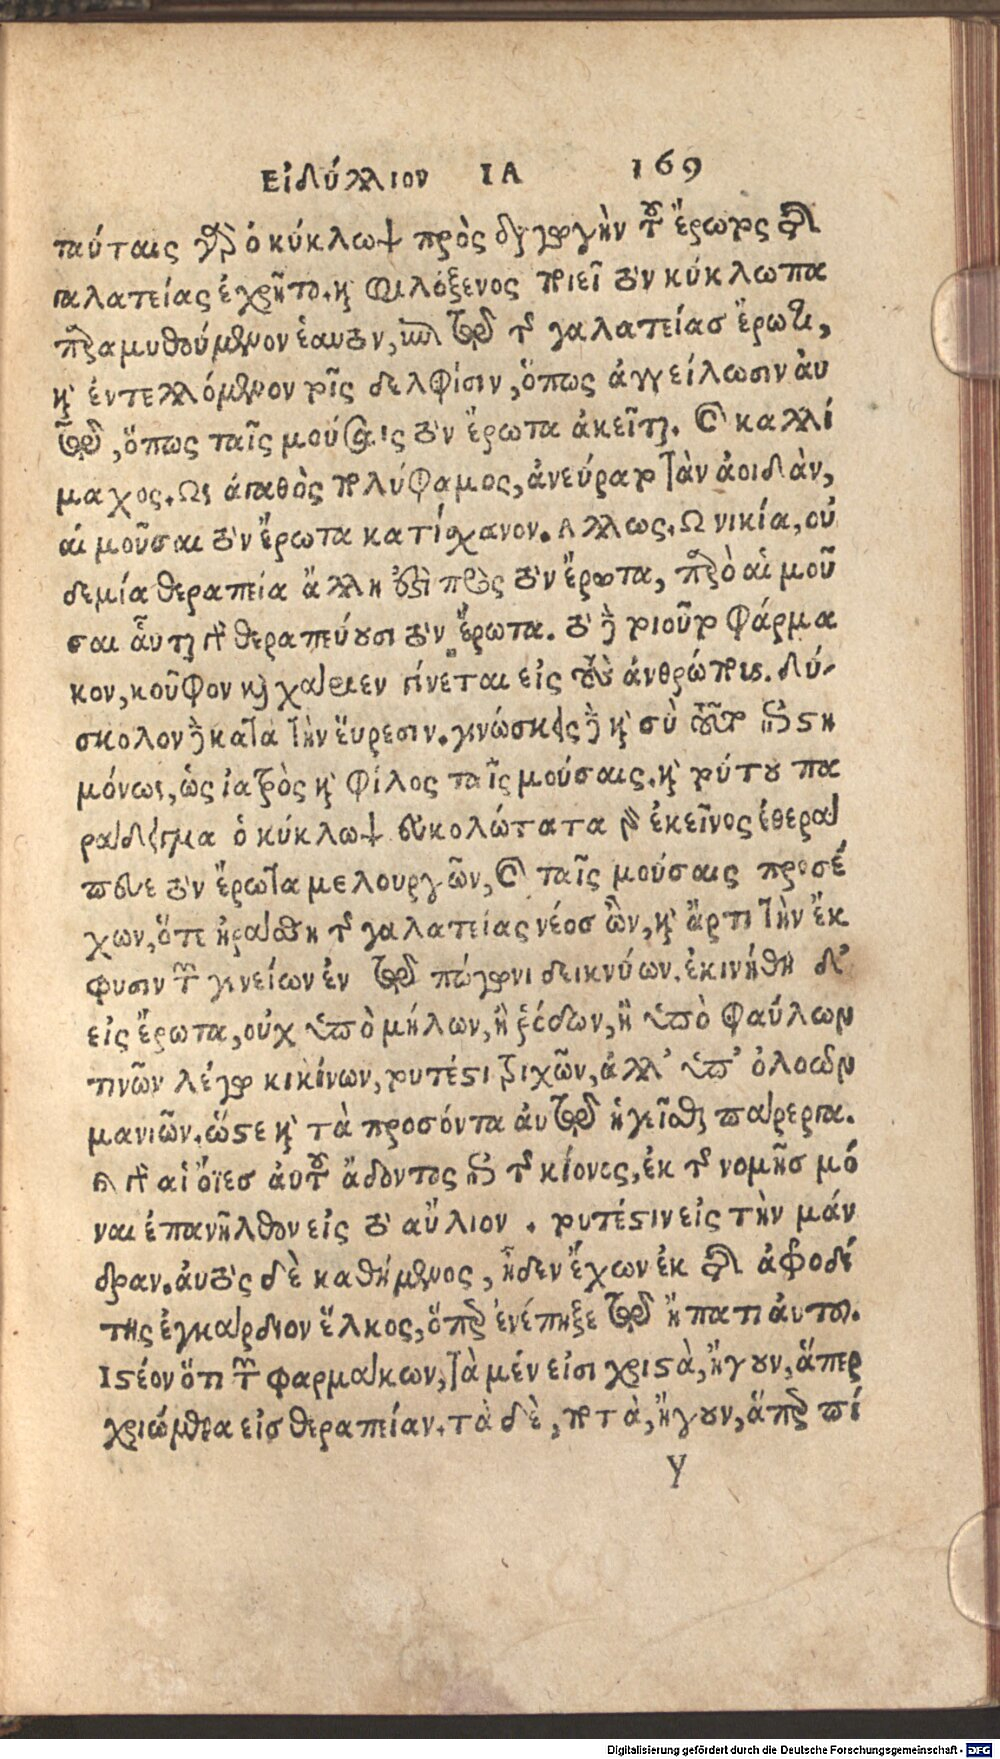 Εἰδύλλιον ΙΑ 169
ταύταις γὰρ ὁ κύκλωψ πρὸς ἀγωγὴν τοῦ ἔρωτος τῆς
γαλατείας ἐχρῆτο. καὶ Φιλόξενος ποιεῖ τὸν κύκλωπα
παραμυθούμενον ἑαυτὸν, ἐπὶ τῷ τῆς γαλατείασ ἔρωτι,
καὶ ἐντελλόμενον τοῖς δελφίσιν, ὅπως ἀγγείλωσιν αὐ
τῷ, ὅπως ταῖς μούσαις τὸν ἔρωτα ἀκεῖται. καὶ καλλί
μαχος. Ως ἀγαθὸς πολύφαμος, ἀνεύρατο τὰν ἀοιδὰν,
αἱ μοῦσαι τὸν ἔρωτα κατίσχανον. Αλλως. Ω νικία, οὐ
δεμία θεραπεία ἄλλη ἐστὶ πρὸς τὸν ἔρωτα, παρὸ αἱ μοῦ
σαι αὗται γὰρ θεραπεύουσι τὸν ἔρωτα. τὸ δὲ τοιοῦτο φάρμα
κον, κοῦφον καὶ χαρίεν γίνεται εἰς τοὺς ἀνθρώποις. δύ-
σκολον δὲ κατὰ τὴν ἕυρεσιν. γινώσκεις δὲ καὶ σὺ τοῦτο οὐ
μόνως, ὡς ἰατρὸς καὶ φίλος ταῖς μούσαις. καὶ τούτου πα
ράδειγμα ὁ κύκλωψ εὐκολώτατα γὰρ ἐκεῖνος ἐθερά
πευε τὸν ἔρωτα μελουργῶν, καὶ ταῖς μούσαις προσέ
χων, ὅτε ἠράσθη τῆς γαλατείας νέοσ ὢν, καὶ ἄρτι τὴν ἔκ
φυσιν τῶν γενείων ἐν τῷ πώγωνι δεικνύων. ἐκινήθη δὲ
εἰς ἔρωτα, οὐχ ὑπὸ μήλων, ἢ ῥόδων, ἢ ὑπὸ φαύλων
τινῶν λέγω κικίνων, τουτέστι τριχῶν, ἀλλ' ὑπ' ὀλοῶν
μανιῶν. ὥστε καὶ τὰ προσόντα αὐτῷ ἡγεῖσθαι πάρεργα.
Αἱ γὰρ αἱ ὄϊες αὐτοῦ ᾄδοντος ἐπὶ τῆς κίονος, ἐκ τῆς νομῆσ μό
ναι ἐπανῆλθον εἰς τὸ αὔλιον . τουτέστιν εἰς τὴν μάν
δραν. αὐτὸς δὲ καθήμενος, ᾖδεν ἔχων ἐκ τῆς ἀφροδί
της ἐγκάρδιον ἕλκος, ὅπερ ἐνέπηξε τῷ ἥπατι αὐτοῦ.
Ιστέον ὅτι τῶν φαρμάκων, τὰ μέν εἰσι χριστὰ, ἤγουν, ἅπερ
χριώμεθα εἰσ θεραπείαν. τὰ δὲ, ποτὰ, ἤγουν, ἅπερ πί
y
Digitalisierung gefördert durch die Deutsche Forschungsgemeinschaft - DFG